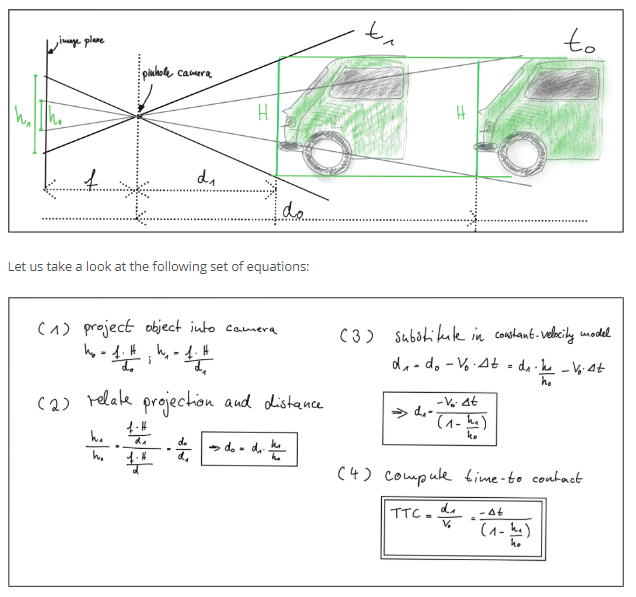 image plane
t₁
t₀
pinhole camera
h₁ h₀
H
H
f
d₁
d₀
Let us take a look at the following set of equations:
(1) project object into camera
h₀ = f·H / d₀ ; h₁ = f·H / d₁
(2) relate projection and distance
h₁ / h₀ = (f·H / d₁) / (f·H / d) = d₀ / d₁ ⇒ d₀ = d₁ · h₁ / h₀
(3) substitute in constant-velocity model
d₁ = d₀ - V₀·Δt = d₁ · h₁ / h₀ - V₀·Δt
⇒ d₁ = -V₀·Δt / (1 - h₁ / h₀)
(4) compute time-to contact
TTC = d₁ / V₀ = -Δt / (1 - h₁ / h₀)